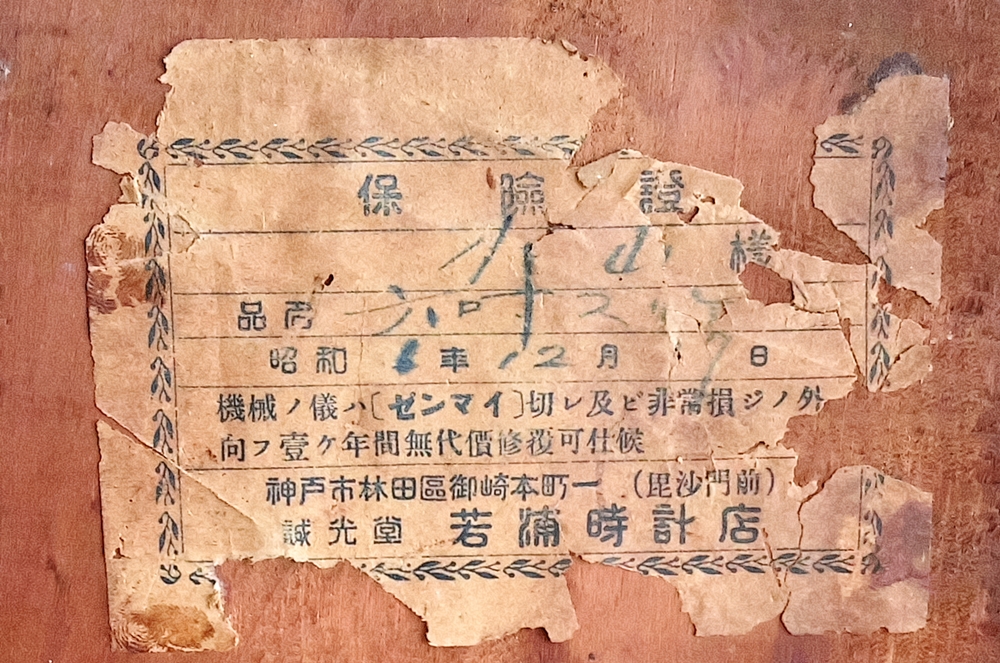 保險證
様
品名 六吋
昭和 6 年 12 月 日
機械ノ儀ハ〔ゼンマイ〕切レ及ビ非常損ジノ外
向フ壹ケ年間無代價修覆可仕候
神戸市林田區御崎本町一 (毘沙門前)
誠光堂 若浦時計店